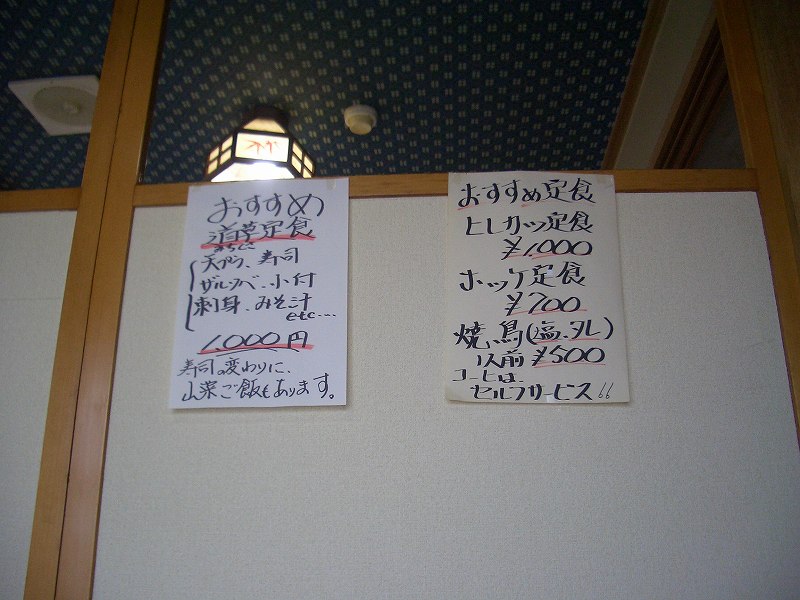 おすすめ
道草定食
みちくさ
天プラ、寿司
ザルソバ、小付
刺身、みそ汁
etc....
1,000円
寿司の変わりに、
山菜ご飯もあります。
おすすめ定食
ヒレカツ定食
¥1,000
ホッケ定食
¥700
焼鳥(塩、タレ)
1人前 ¥500
コーヒーは、
セルフサービス